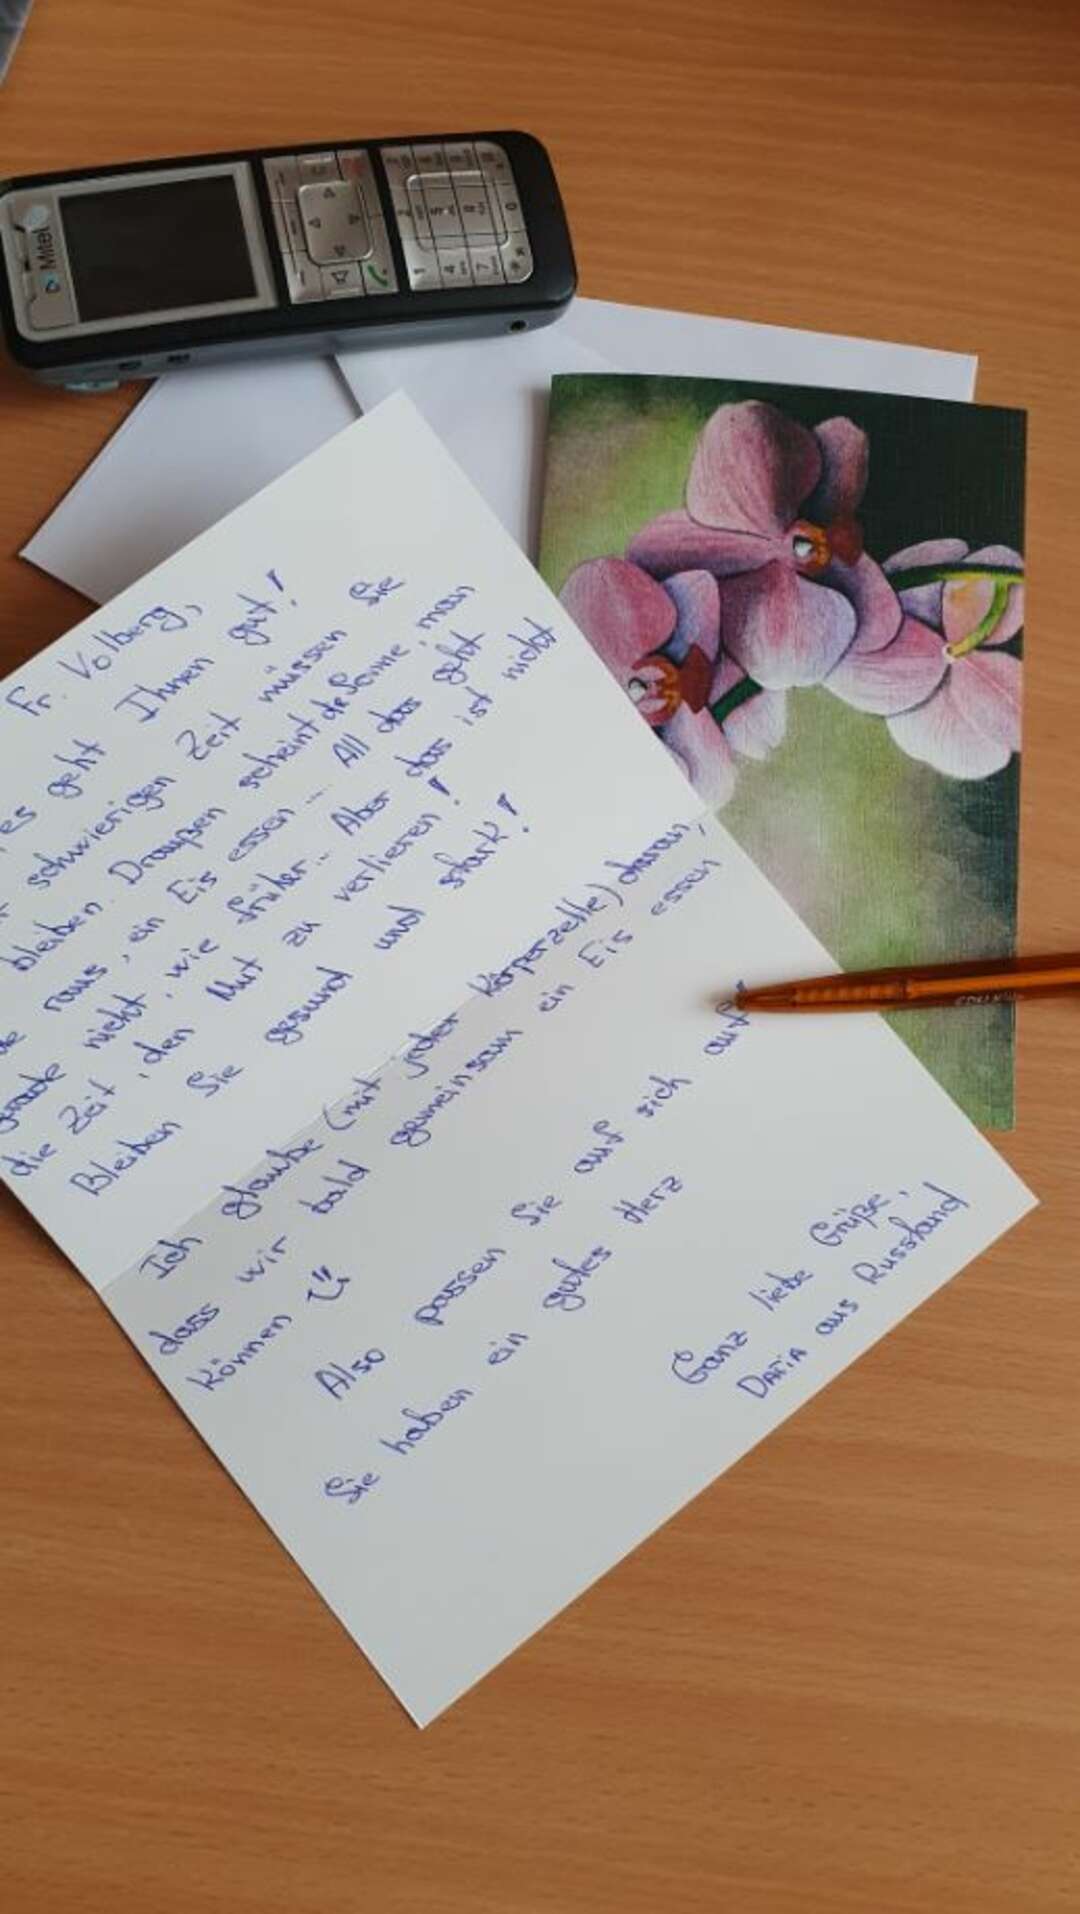 Mitel
Fr. Vollberg,
es geht Ihnen gut!
schwierigen Zeit müssen Sie
bleiben. Draußen scheint die Sonne, man
raus, ein Eis essen... All das geht
nicht, wie früher... Aber das ist nicht
die Zeit, den Mut zu verlieren!
Bleiben Sie gesund und stark!
Ich glaube (mit jeder Körperzelle) daran,
dass wir bald gemeinsam ein Eis essen
können
Also passen Sie auf sich auf!
Sie haben ein gutes Herz
Ganz liebe Grüße,
Daria aus Russland